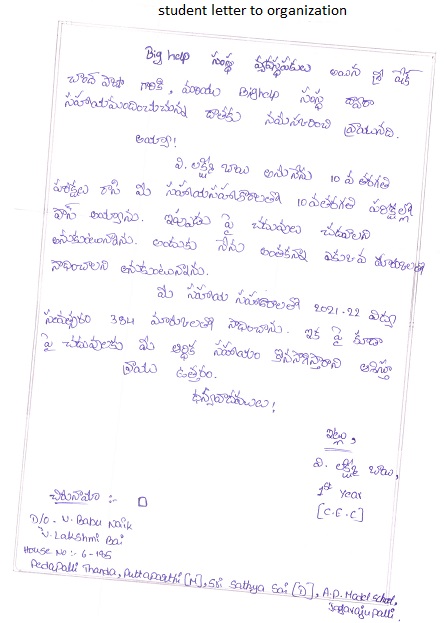 student letter to organization
Big help సంస్థ వ్యవస్థాపకులు అయిన శ్రీ షేక్
చాంద్ పాషా గారికి, మరియు Bighelp సంస్థ ద్వారా
సహాయమందించుచున్న దాతలకు నమస్కరించి వ్రాయునది.
అయ్యా!
వి. లక్ష్మీ బాయి అను నేను 10 వ తరగతి
పరీక్షలు రాసి మీ సహాయసహకారాలతో 10వతరగతి పరీక్షల్లో
పాస్ అయ్యాను. ఇప్పుడు పై చదువులు చదవాలని
అనుకుంటున్నాను. అందుకు నేను అంతకన్నా ఎక్కువ మార్కులతో
సాధించాలని అనుకుంటున్నాను.
మీ సహాయ సహకారాలతో 2021-22 విద్యా
సంవత్సరం 384 మార్కులతో సాధించాను. ఇక పై కూడా
పై చదువులకు మీ ఆర్థిక సహాయం కొనసాగిస్తారని ఆశిస్తూ
వ్రాయు ఉత్తరం.
ధన్యవాదములు!
ఇట్లు,
వి. లక్ష్మీ బాయి,
1st Year
[C.E.C]
చిరునామా :-
D/O - V. Babu Naik
V. Lakshmi Bai
House No :- 6-195
Pedapalli Thanda, Puttaparthi [M], Sri Sathya Sai [D], A.P. Model School,
Jagarajupalli.